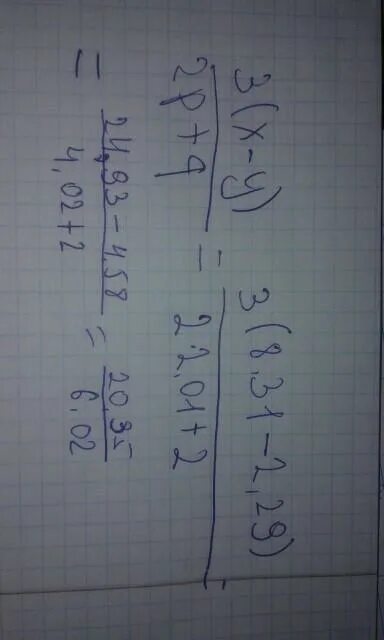 3(x-y) / 2p+q = 3(8,31-2,29) / 2·2,01+2 =
= 24,93-4,58 / 4,02+2 = 20,35 / 6,02